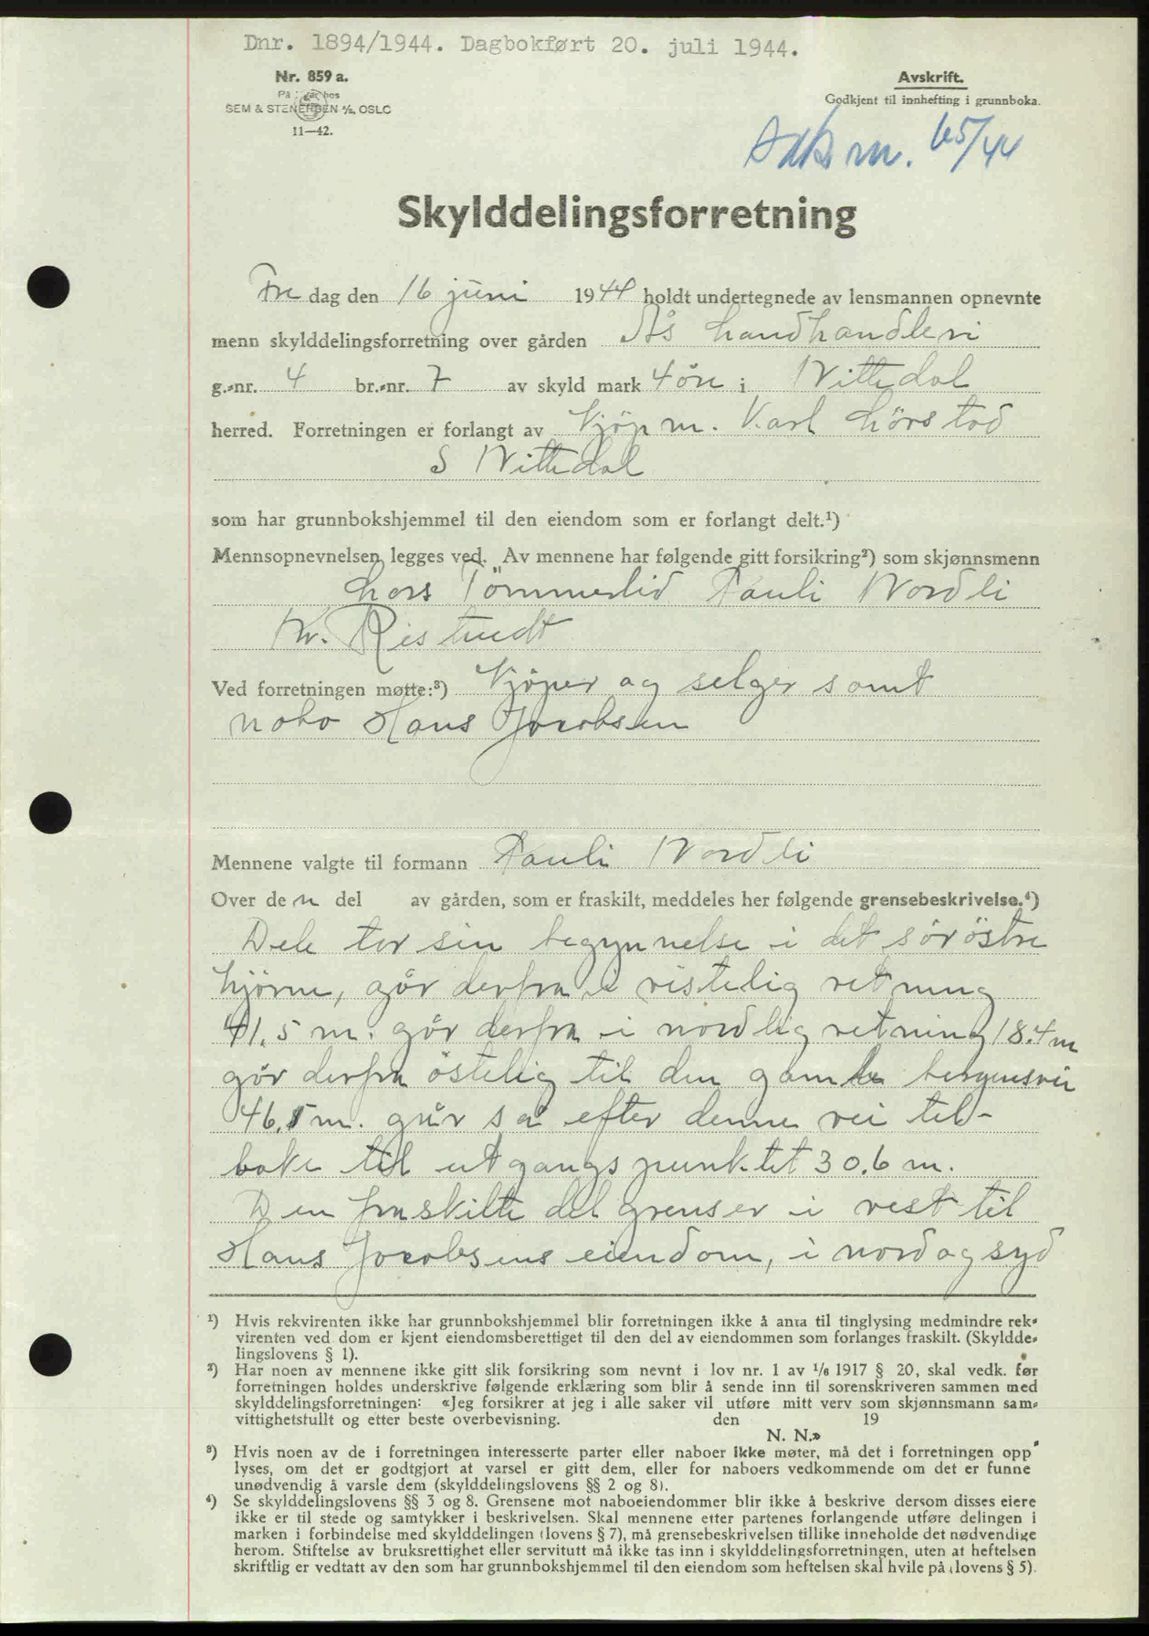 Dnr. 1894/1944. Dagbokført 20. juli 1944.
Nr. 859 a.
På hos
SEM & STENERSEN A/S, OSLO
11—42.
Avskrift.
Godkjent til innhefting i grunnboka.
m. 65/44
Skylddelingsforretning
Fre dag den 16 juni 1944 holdt undertegnede av lensmannen opnevnte
menn skylddelingsforretning over gården Ås landhandleri
g.-nr. 4 br.-nr. 7 av skyld mark 4 öre i Nittedal
herred. Forretningen er forlangt av Kjöpm. Karl Lörstad
S Nittedal
som har grunnbokshjemmel til den eiendom som er forlangt delt.¹)
Mennsopnevnelsen legges ved. Av mennene har følgende gitt forsikring²) som skjønnsmenn
Lars Tömmerlid Pauli Nordli
Kr. Ristvedt
Ved forretningen møtte:³) Kjöper og selger samt
nabo Hans Jacobsen
Mennene valgte til formann Pauli Nordli
Over den del av gården, som er fraskilt, meddeles her følgende grensebeskrivelse.⁴)
Dele tar sin begynnelse i det söröstre
hjörne, går derfra i vistelig retning
41,5 m. går derfra i nordlig retning 18.4 m
går derfra östelig til den gamle bergensvei
46,5 m. går så efter denne vei til-
bake til utgangspunktet 30.6 m.
Den fraskilte del grenser i vest til
Hans Jacobsens eiendom, i nord og syd
¹) Hvis rekvirenten ikke har grunnbokshjemmel blir forretningen ikke å anta til tinglysing medmindre rek-
virenten ved dom er kjent eiendomsberettiget til den del av eiendommen som forlanges fraskilt. (Skyldde-
lingslovens § 1).
²) Har noen av mennene ikke gitt slik forsikring som nevnt i lov nr. 1 av ¹/₆ 1917 § 20, skal vedk. før
forretningen holdes underskrive følgende erklæring som blir å sende inn til sorenskriveren sammen med
skylddelingsforretningen: «Jeg forsikrer at jeg i alle saker vil utføre mitt verv som skjønnsmann sam-
vittighetsfullt og etter beste overbevisning. den 19
N. N.»
³) Hvis noen av de i forretningen interesserte parter eller naboer ikke møter, må det i forretningen opp-
lyses, om det er godtgjort at varsel er gitt dem, eller for naboers vedkommende om det er funne
unødvendig å varsle dem (skylddelingslovens §§ 2 og 8).
⁴) Se skylddelingslovens §§ 3 og 8. Grensene mot naboeiendommer blir ikke å beskrive dersom disses eiere
ikke er til stede og samtykker i beskrivelsen. Skal mennene etter partenes forlangende utføre delingen i
marken i forbindelse med skylddelingen (lovens § 7), må grensebeskrivelsen tillike inneholde det nødvendige
herom. Stiftelse av bruksrettighet eller servitutt må ikke tas inn i skylddelingsforretningen, uten at heftelsen
skriftlig er vedtatt av den som har grunnbokshjemmel til den eiendom som heftelsen skal hvile på (lovens § 5).